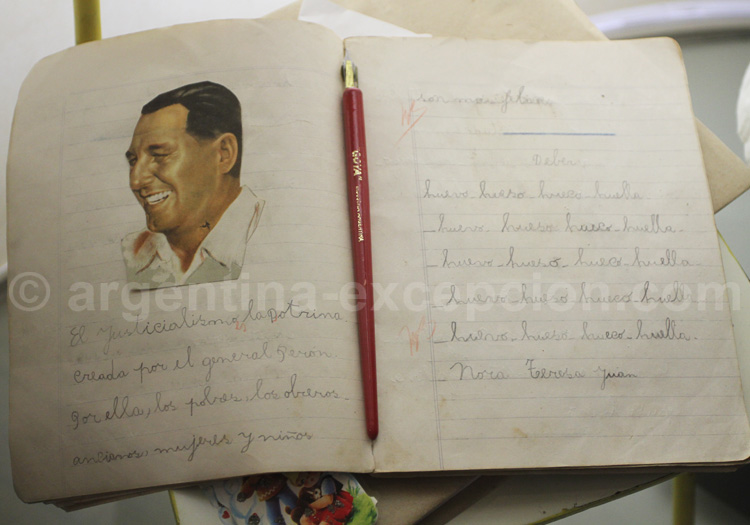 El Justicialismo, la Dotrina
creada por el general Peron
Por ella, los pobres, los obreros
ancianos, mujeres y niños
GOYA
son mas
Deber
huevo-hueso-hueco-huella
huevo-hueso-hueco-huella.
huevo-hueso-hueco-huella.
huevo-hueso-hueco-huella
huevo-hueso-hueco-huella.
Nora Teresa Juan
© argentina-excepcion.com